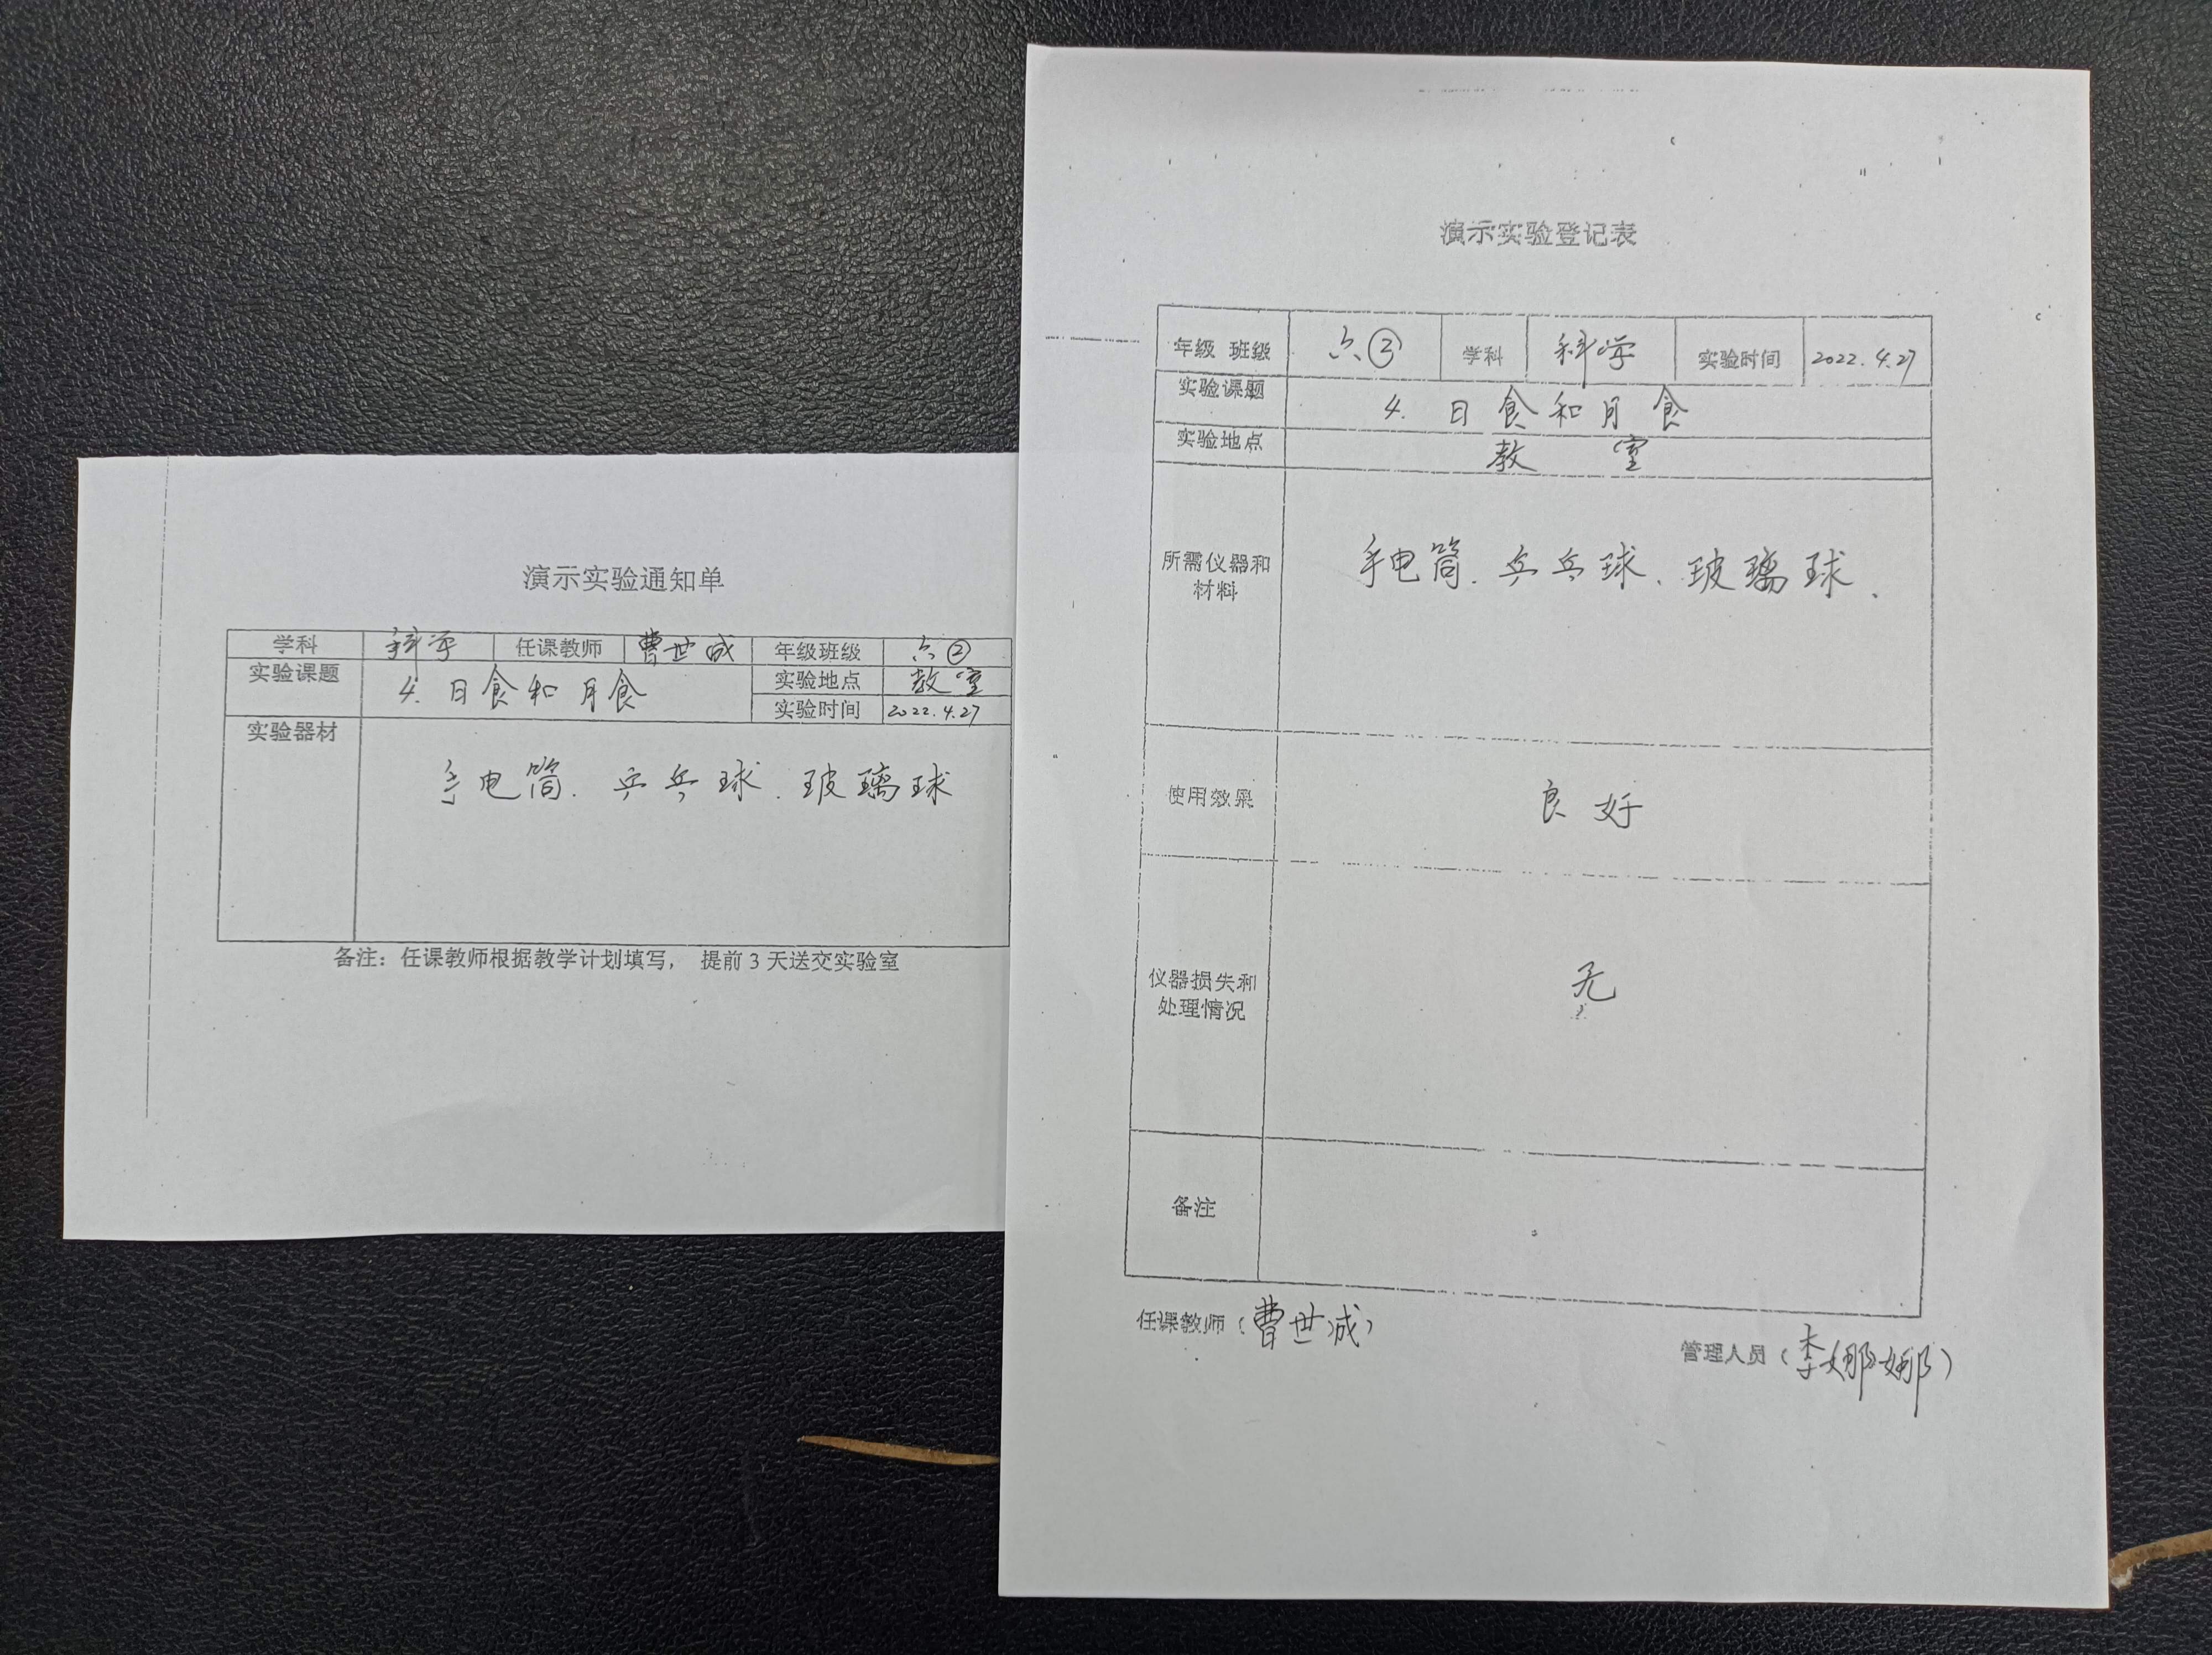 演示实验通知单
学科 科学 任课教师 曹世成 年级班级 六②
实验课题 4. 日食和月食 实验地点 教室
实验时间 2022.4.27
实验器材 手电筒、乒乓球、玻璃球
备注：任课教师根据教学计划填写， 提前 3 天送交实验室
演示实验登记表
年级 班级 六② 学科 科学 实验时间 2022.4.27
实验课题 4. 日食和月食
实验地点 教室
所需仪器和
材料 手电筒、乒乓球、玻璃球、
使用效果 良好
仪器损失和
处理情况 无
备注
任课教师（曹世成）
管理人员（李娜娜）